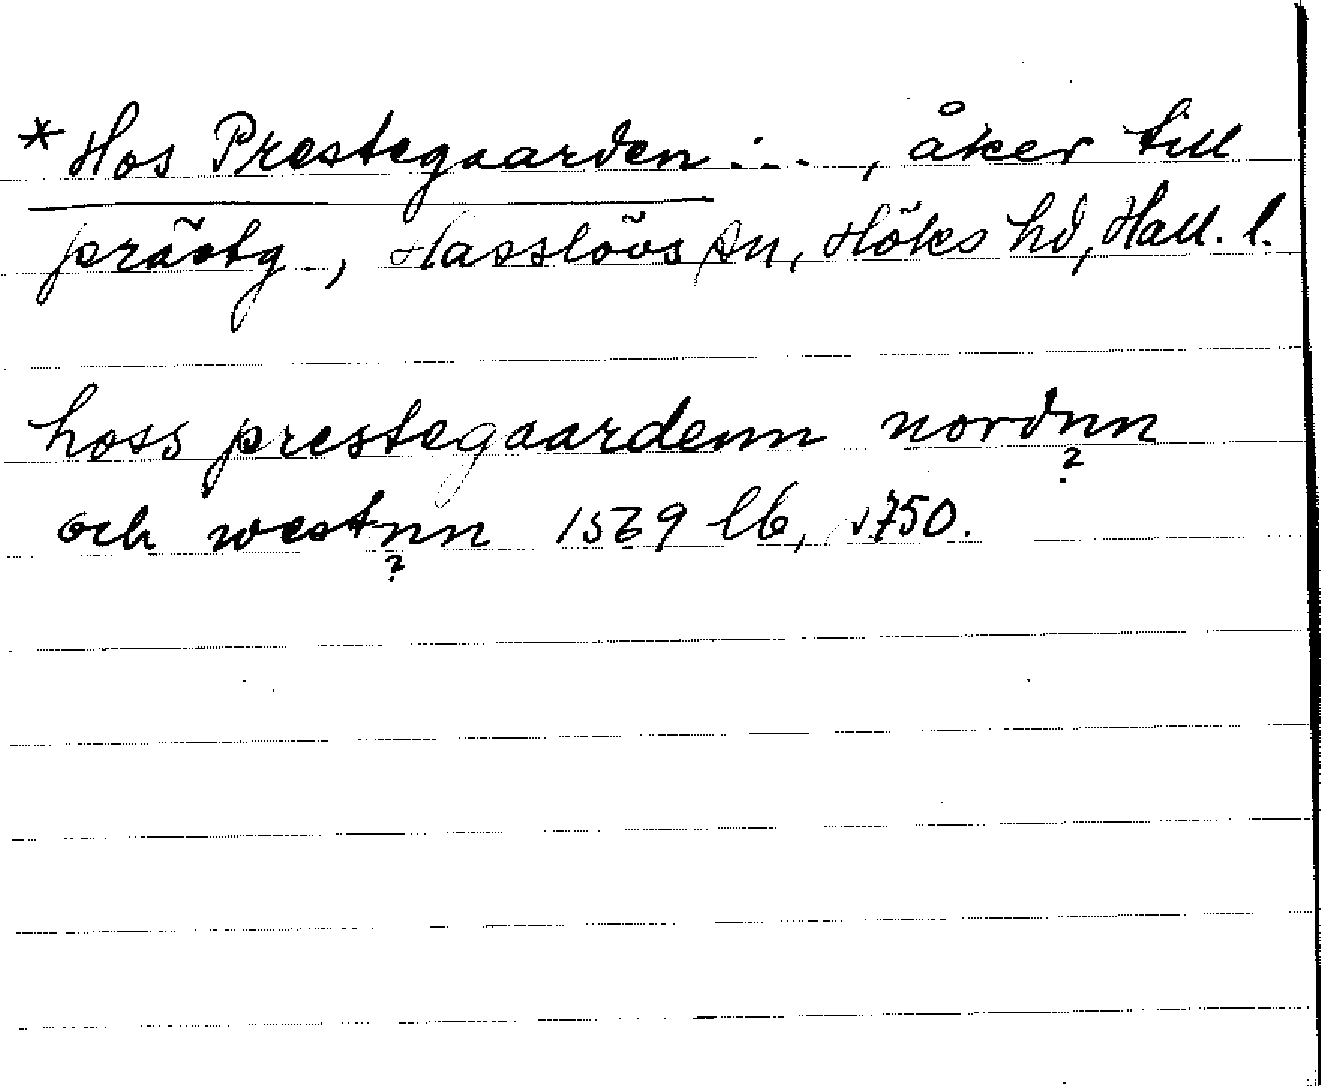 * Hos Prestegaarden ... , åker till
prästg, Hasslövs sn, Höks hd, Hall. l.
hoss prestegaardenn nordnn
?
och westnn 1569 lb, s.750.
?